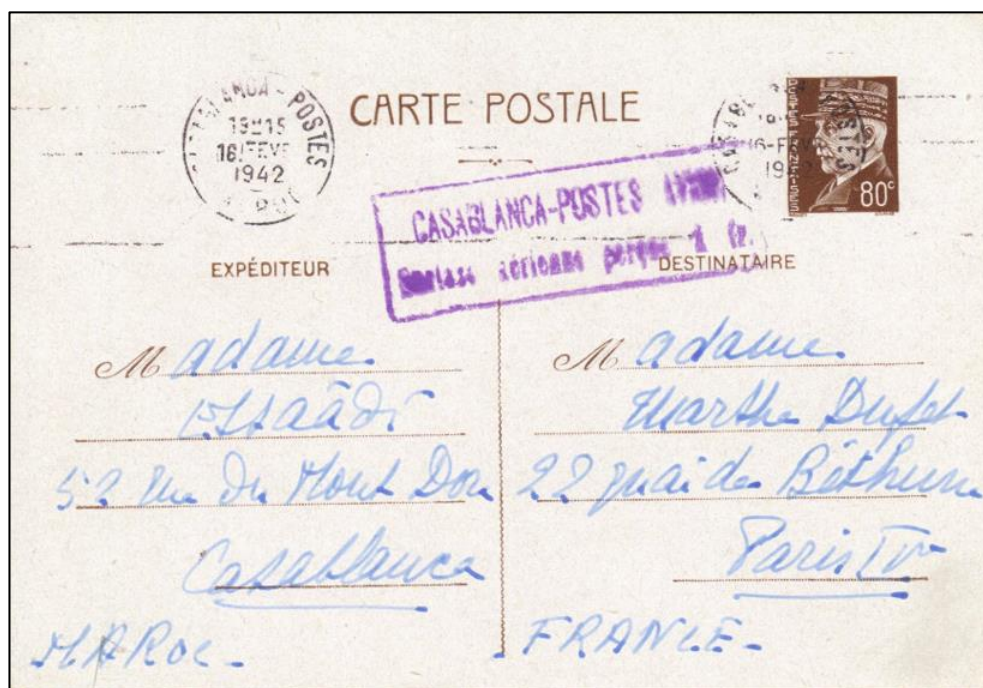 CASABLANCA - POSTES
19H15
16 FEVR
1942
CARTE POSTALE
80c
CASABLANCA-POSTES AVION
Surtaxe aérienne perçue 1 fr.
EXPÉDITEUR
DESTINATAIRE
Madame
52 Rue du Mont Dore
Casablanca
MAROC-
Madame
Marthe
22 quai de Béthune
Paris IV
FRANCE-